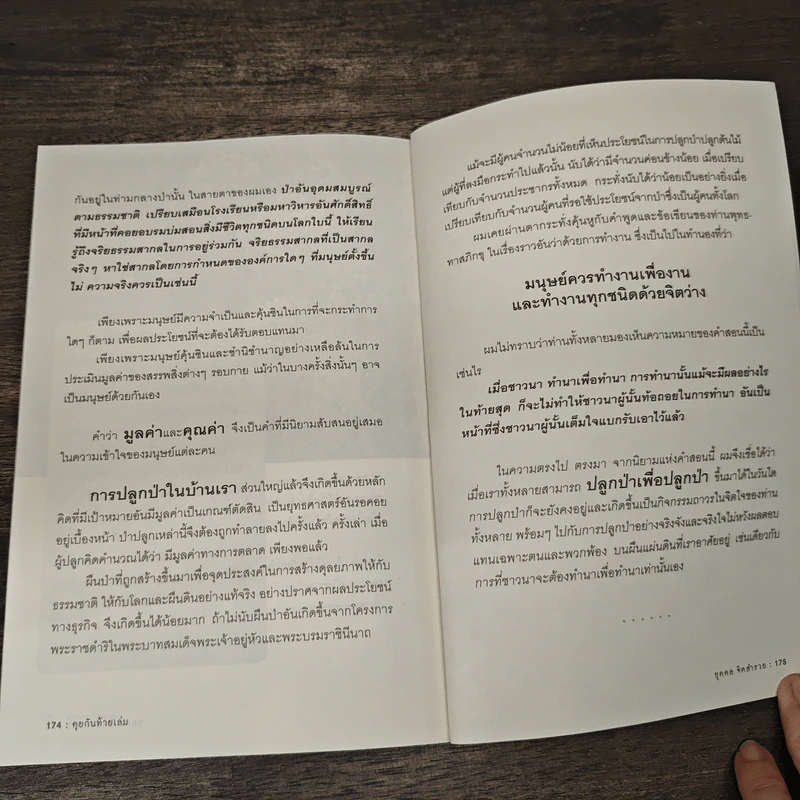 กันอยู่ในท่ามกลางป่านั้น ในสายตาของผมเอง ป่าอันอุดมสมบูรณ์
ตามธรรมชาติ เปรียบเสมือนโรงเรียนหรือมหาวิหารอันศักดิ์สิทธิ์
ที่มีหน้าที่คอยอบรมบ่มสอนสิ่งมีชีวิตทุกชนิดบนโลกใบนี้ ให้เรียน
รู้ถึงจริยธรรมสากลในการอยู่ร่วมกัน จริยธรรมสากลที่เป็นสากล
จริงๆ หาใช่สากลโดยการกำหนดขององค์การใดๆ ที่มนุษย์ตั้งขึ้น
ไม่ ความจริงควรเป็นเช่นนี้
เพียงเพราะมนุษย์มีความจำเป็นและคุ้นชินในการที่จะกระทำการ
ใดๆ ก็ตาม เพื่อผลประโยชน์ที่จะต้องได้รับตอบแทนมา
เพียงเพราะมนุษย์คุ้นชินและชำนิชำนาญอย่างเหลือล้นในการ
ประเมินมูลค่าของสรรพสิ่งต่างๆ รอบกาย แม้ว่าในบางครั้งสิ่งนั้นๆ อาจ
เป็นมนุษย์ด้วยกันเอง
คำว่า มูลค่าและคุณค่า จึงเป็นคำที่มีนิยามสับสนอยู่เสมอ
ในความเข้าใจของมนุษย์แต่ละคน
การปลูกป่าในบ้านเรา ส่วนใหญ่แล้วจึงเกิดขึ้นด้วยหลัก
คิดที่มีเป้าหมายอันมีมูลค่าเป็นเกณฑ์ตัดสิน เป็นยุทธศาสตร์อันรอคอย
อยู่เบื้องหน้า ป่าปลูกเหล่านี้จึงต้องถูกทำลายลงไปครั้งแล้ว ครั้งเล่า เมื่อ
ผู้ปลูกคิดคำนวณได้ว่า มีมูลค่าทางการตลาด เพียงพอแล้ว
ผืนป่าที่ถูกสร้างขึ้นมาเพื่อจุดประสงค์ในการสร้างดุลยภาพให้กับ
ธรรมชาติ ให้กับโลกและผืนดินอย่างแท้จริง อย่างปราศจากผลประโยชน์
ทางธุรกิจ จึงเกิดขึ้นได้น้อยมาก ถ้าไม่นับผืนป่าอันเกิดขึ้นจากโครงการ
พระราชดำริในพระบาทสมเด็จพระเจ้าอยู่หัวและพระบรมราชินีนาถ
174 : คุยกันท้ายเล่ม
แม้จะมีผู้คนจำนวนไม่น้อยที่เห็นประโยชน์ในการปลูกป่าปลูกต้นไม้
แต่ผู้ที่ลงมือกระทำไปแล้วนั้น นับได้ว่ามีจำนวนค่อนข้างน้อย เมื่อเปรียบ
เทียบกับจำนวนประชากรทั้งหมด กระทั่งนับได้ว่าน้อยเป็นอย่างยิ่งเมื่อ
เปรียบเทียบกับจำนวนผู้คนที่รอใช้ประโยชน์จากป่าซึ่งเป็นผู้คนทั้งโลก
ผมเคยผ่านตากระทั่งคุ้นหูกับคำพูดและข้อเขียนของท่านพุทธ-
ทาสภิกขุ ในเรื่องราวอันว่าด้วยการทำงาน ซึ่งเป็นไปในทำนองที่ว่า
มนุษย์ควรทำงานเพื่องาน
และทำงานทุกชนิดด้วยจิตว่าง
ผมไม่ทราบว่าท่านทั้งหลายมองเห็นความหมายของคำสอนนี้เป็น
เช่นไร
เมื่อชาวนา ทำนาเพื่อทำนา การทำนานั้นแม้จะมีผลอย่างไร
ในท้ายสุด ก็จะไม่ทำให้ชาวนาผู้นั้นท้อถอยในการทำนา อันเป็น
หน้าที่ซึ่งชาวนาผู้นั้นเต็มใจแบกรับเอาไว้แล้ว
ในความตรงไป ตรงมา จากนิยามแห่งคำสอนนี้ ผมจึงเชื่อได้ว่า
เมื่อเราทั้งหลายสามารถ ปลูกป่าเพื่อปลูกป่า ขึ้นมาได้ในวันใด
การปลูกป่าก็จะยังคงอยู่และเกิดขึ้นเป็นกิจกรรมถาวรในจิตใจของท่าน
ทั้งหลาย พร้อมๆ ไปกับการปลูกป่าอย่างจริงจังและจริงใจไม่หวังผลตอบ
แทนเฉพาะตนและพวกพ้อง บนผืนแผ่นดินที่เราอาศัยอยู่ เช่นเดียวกับ
การที่ชาวนาจะต้องทำนาเพื่อทำนาเท่านั้นเอง
. . . . . .
ยุคคล จิตสำรวย : 175